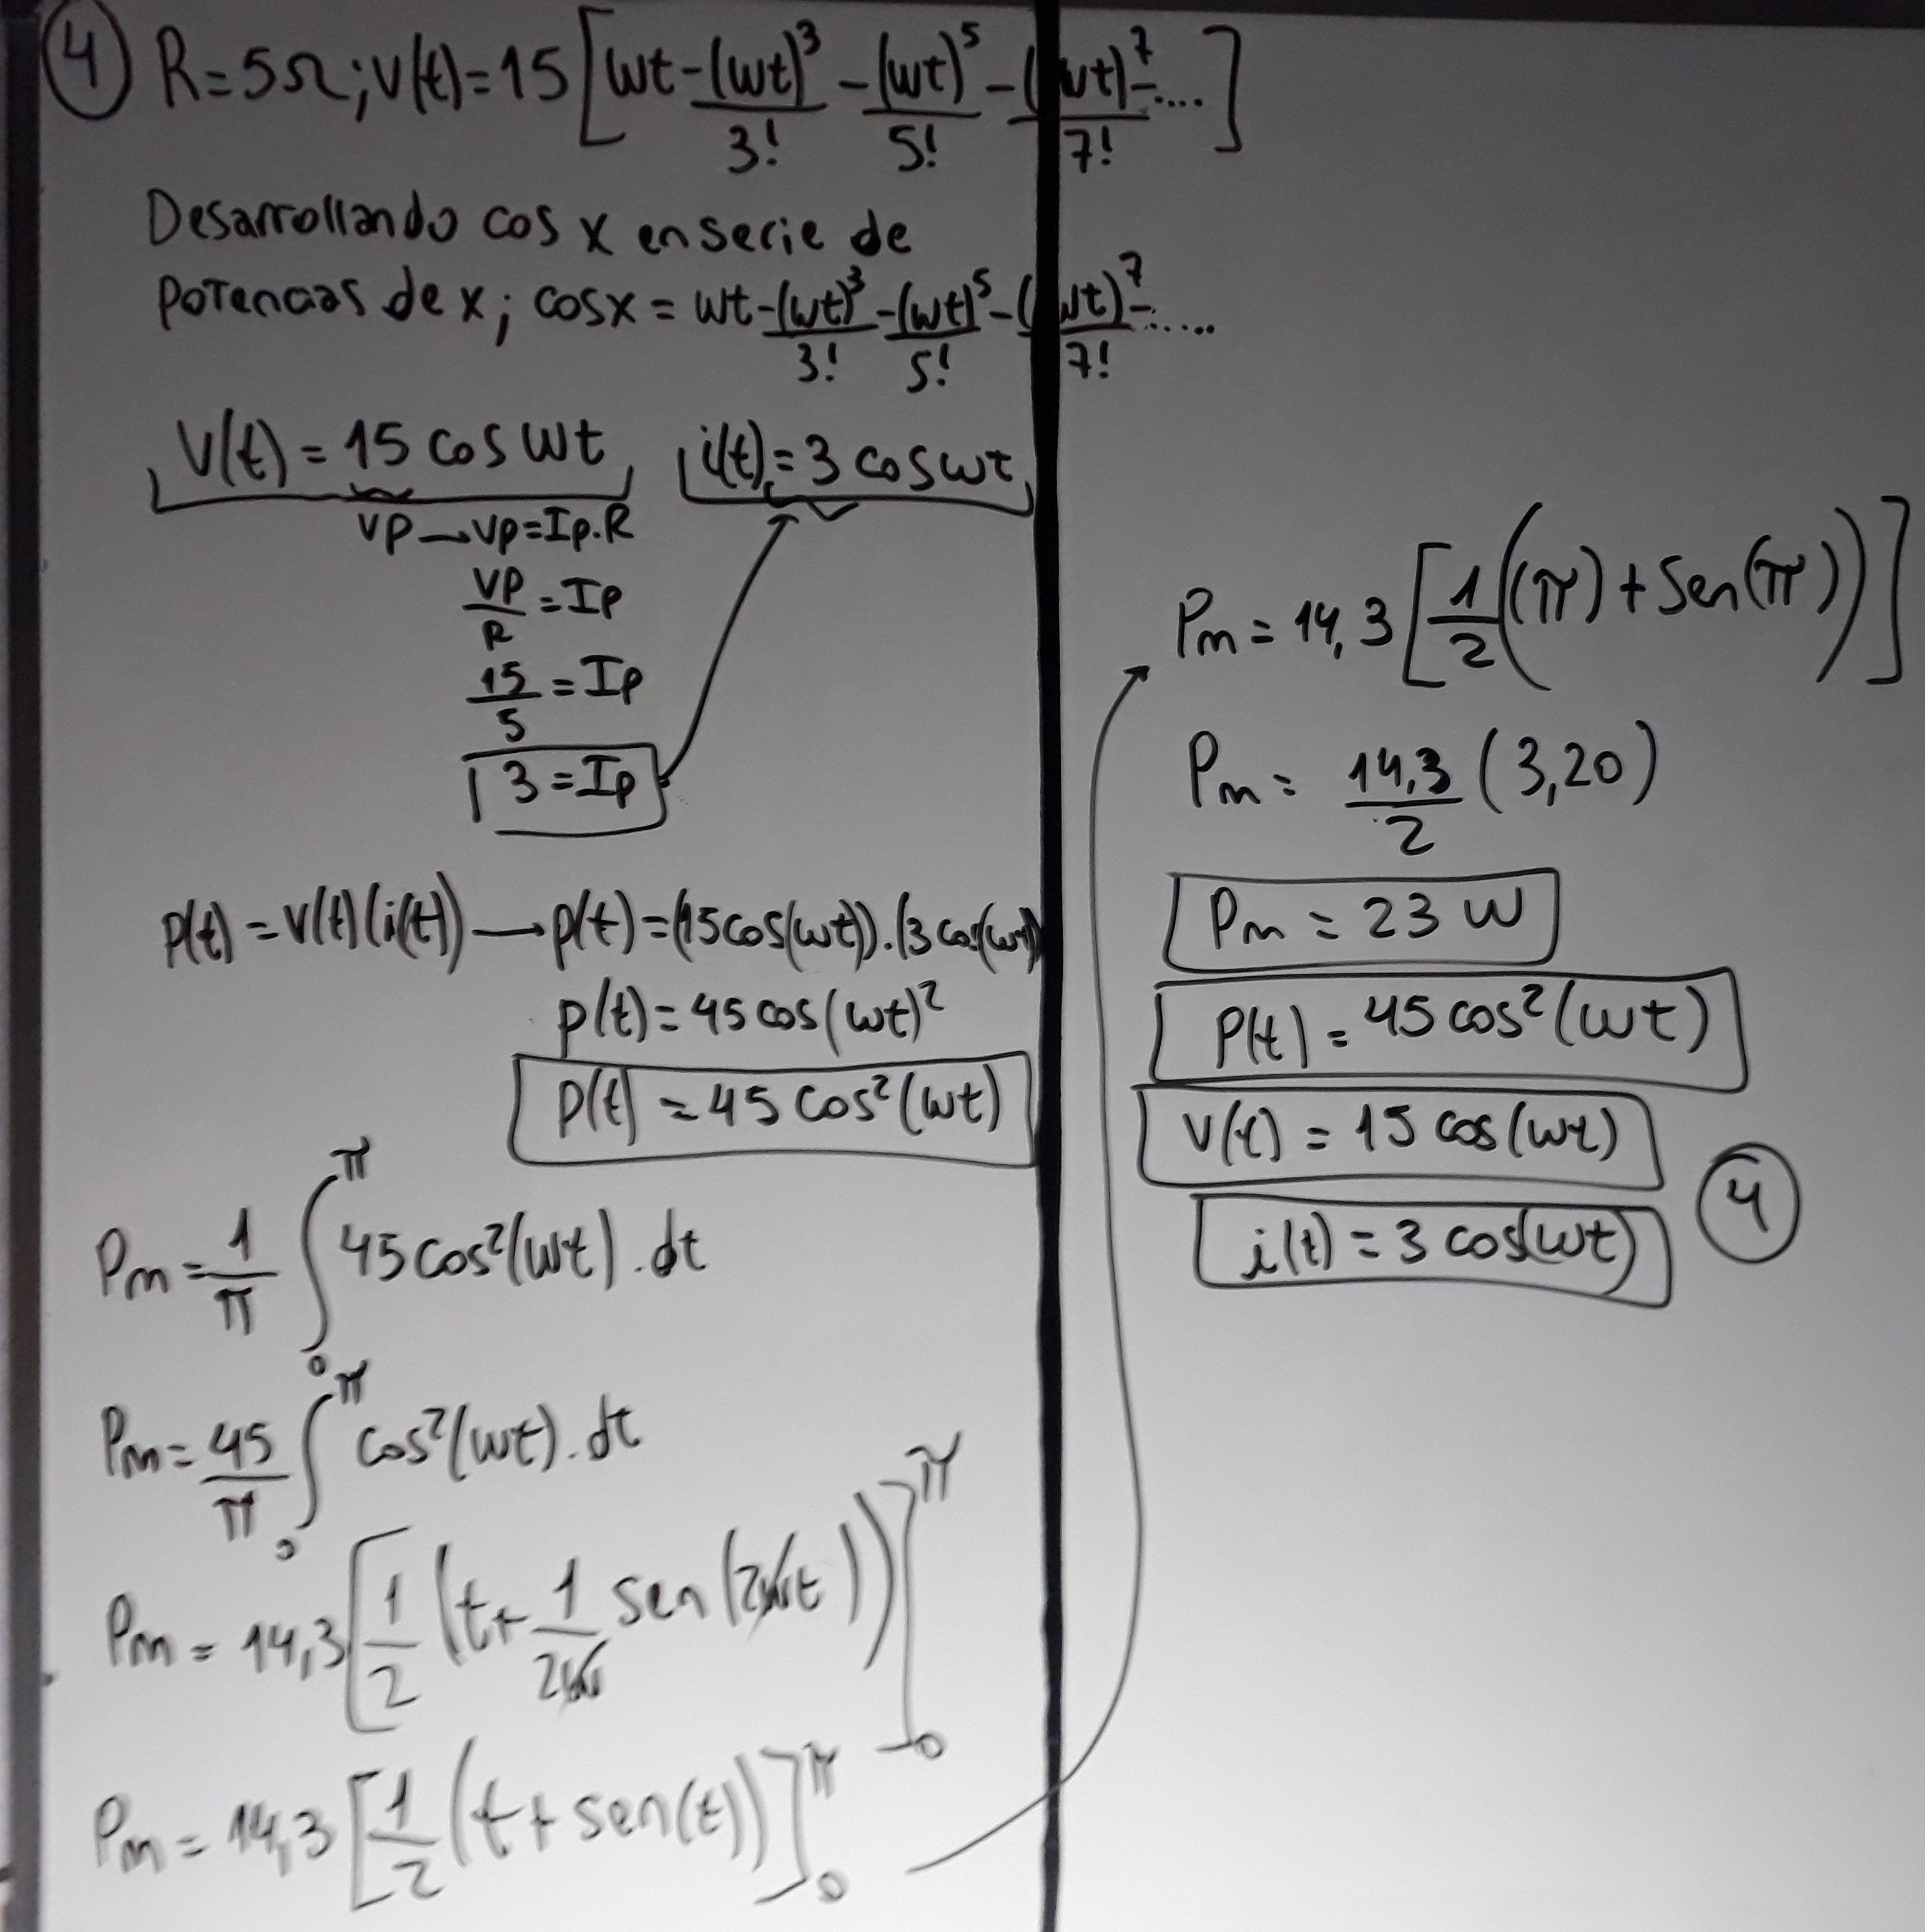 ④ R=5Ω; v(t)=15[wt-(wt)³/3! -(wt)⁵/5! -(wt)⁷/7! -....]
Desarrollando cos x en serie de
potencias de x; cosx = wt-(wt)³/3! -(wt)⁵/5! -(wt)⁷/7! -.....
V(t) = 15 cos wt i(t)=3 coswt
VP→VP=Ip.R
VP/R=Ip
15/5=Ip
3=Ip
P(t)=v(t)(i(t))→p(t)=(15cos(wt)).(3cos(wt)
p(t)=45cos(wt)²
p(t)=45cos²(wt)
Pm=1/π ∫₀^π 45cos²(wt).dt
Pm=45/π ∫₀^π cos²(wt).dt
Pm=14,3[1/2(t+1/2w sen(2wt))]₀^π
Pm=14,3[1/2(t+sen(t))]₀^π
Pm=14,3[1/2((π)+Sen(π))]
Pm=14,3/2(3,20)
Pm=23 W
P(t)=45cos²(wt)
V(t)=15cos(wt)
i(t)=3cos(wt)
④